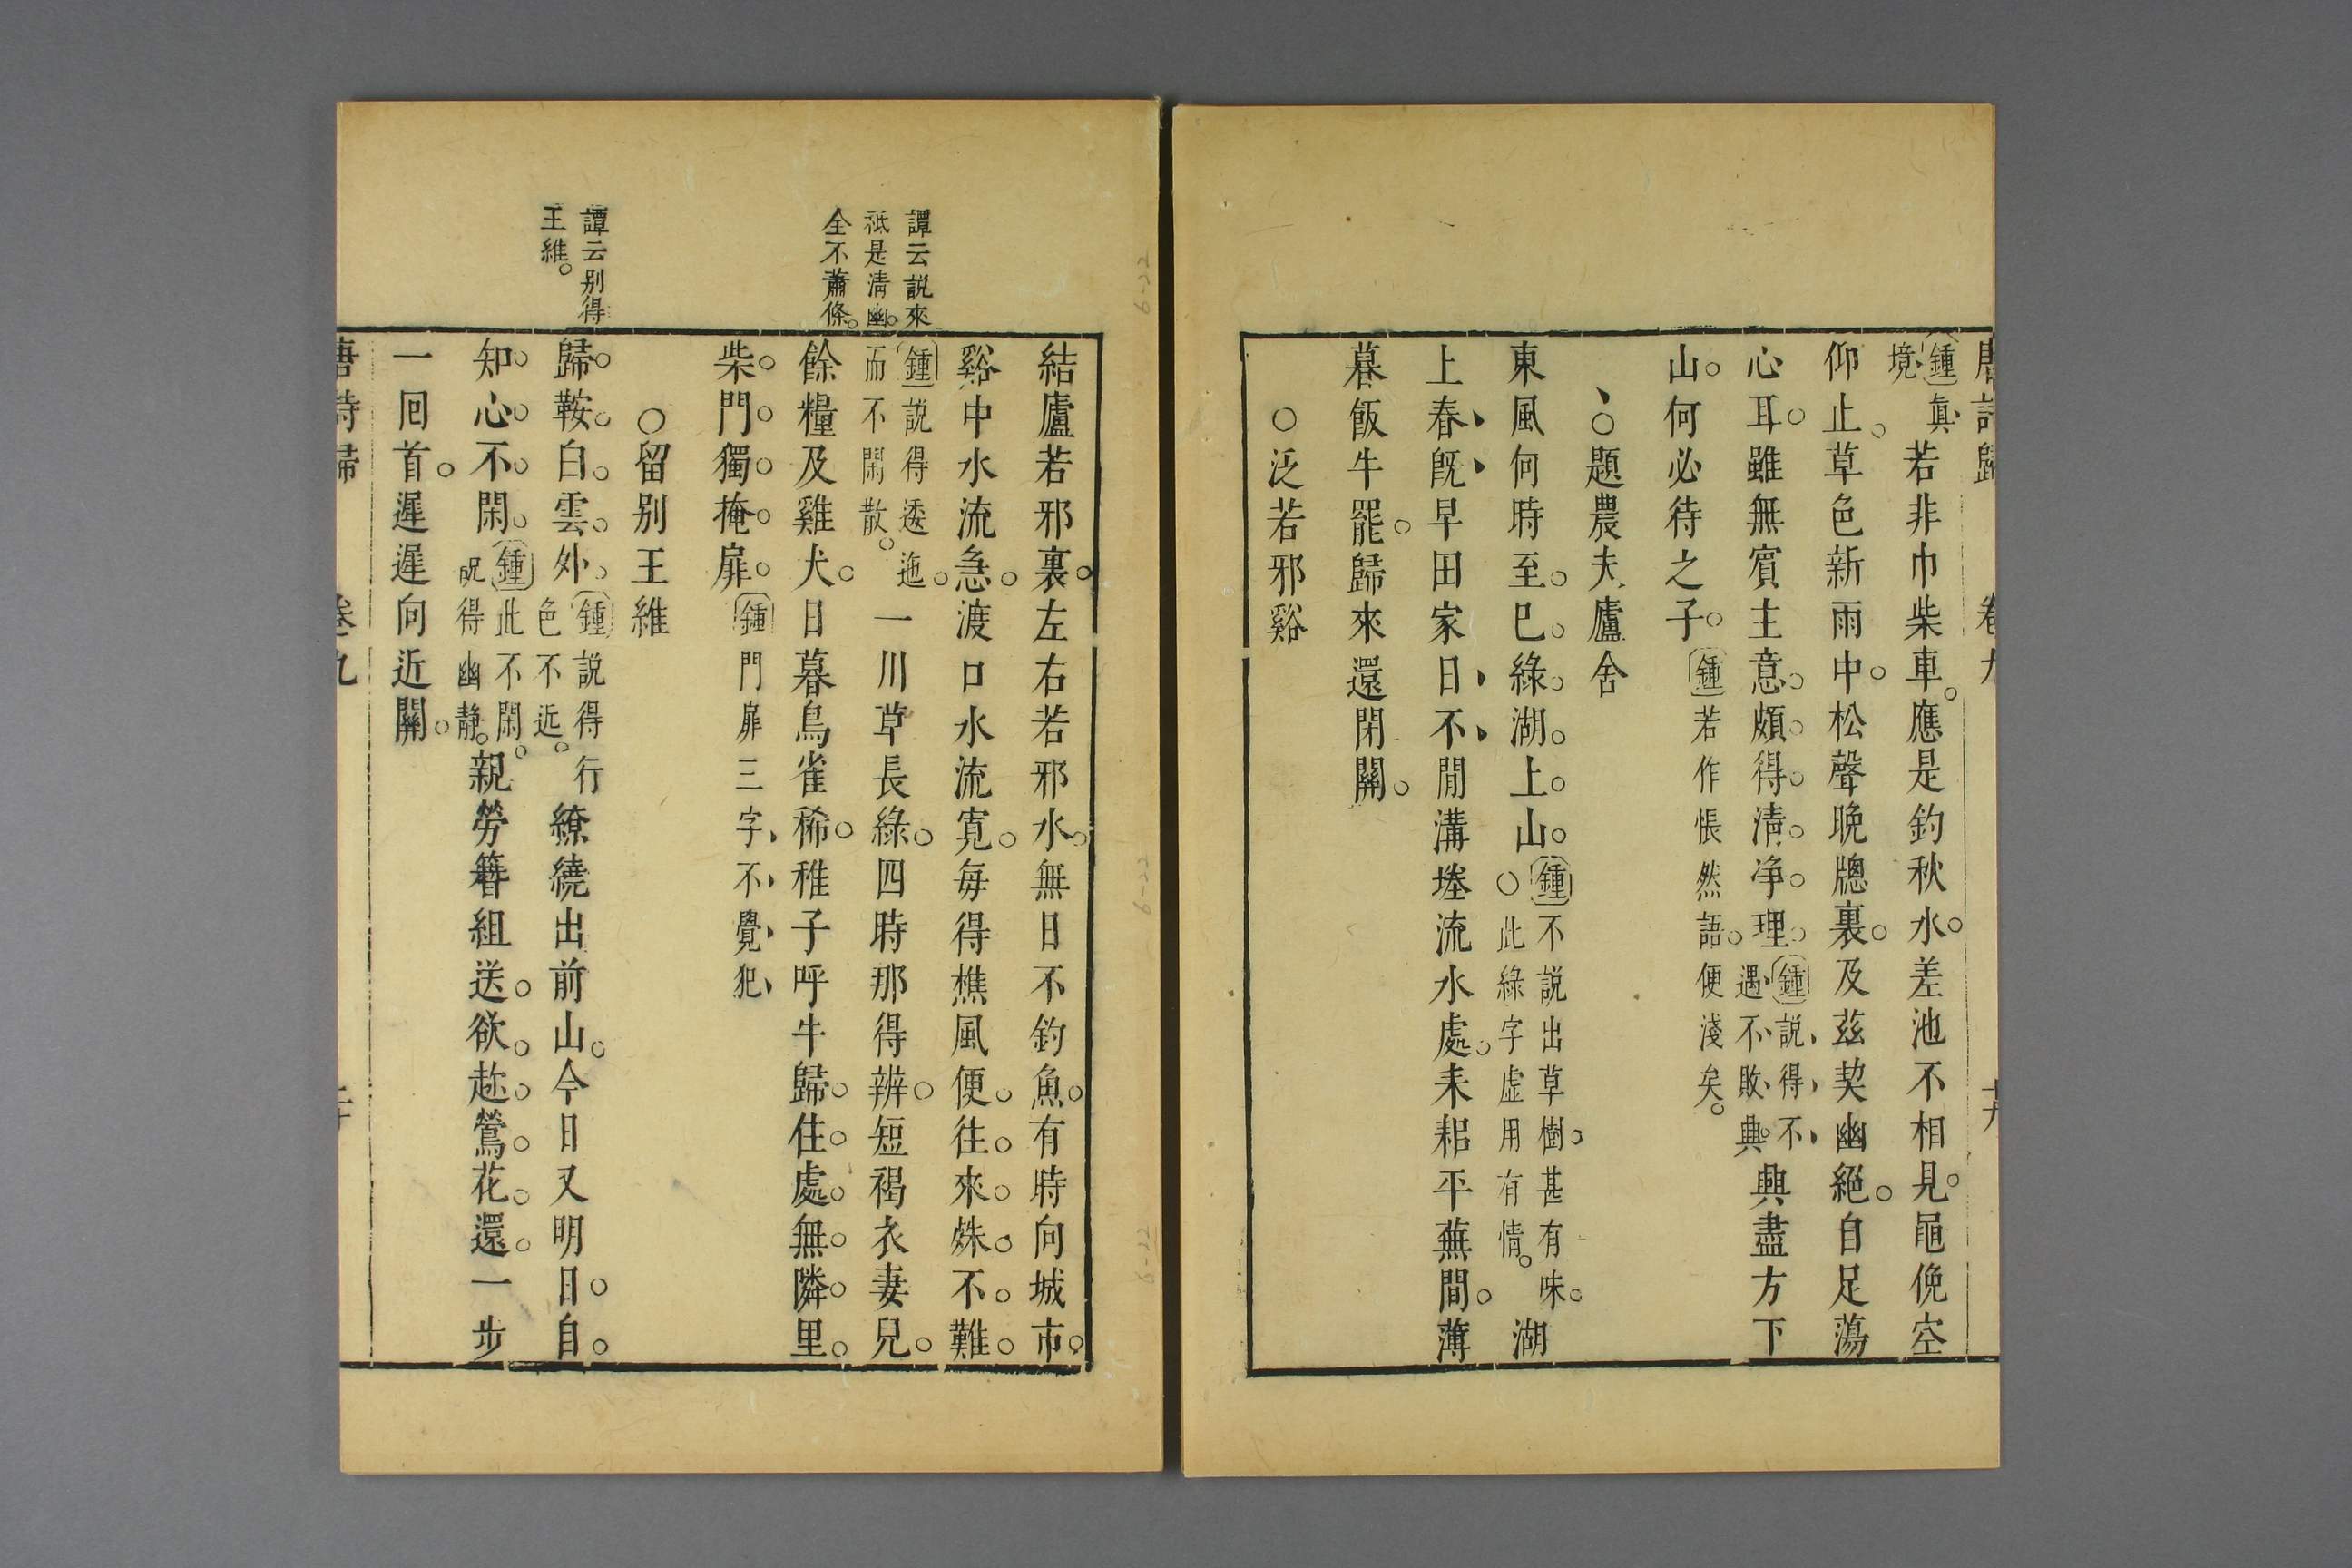 唐詩歸 卷九 十九
鍾真境 若非巾柴車應是釣秋水差池不相見黽俛空
仰止草色新雨中松聲晚牕裏及茲契幽絕自足蕩
心耳雖無賓主意頗得清凈理 鍾說得不遇不敗典 興盡方下
山何必待之子 鍾若作悵然語便淺矣
○題農夫廬舍
東風何時至已綠湖上山 鍾不說出草樹甚有味○此綠字虛用有情 湖
上春旣早田家日不閒溝塍流水處耒耜平蕪間薄
暮飯牛罷歸來還閉關
○泛若邪谿
結廬若邪裏左右若邪水無日不釣魚有時向城市
谿中水流急渡口水流寛每得樵風便往來殊不難
鍾說得透迤而不閑散 一川草長綠四時那得辨短褐衣妻兒
餘糧及雞犬日暮鳥雀稀稚子呼牛歸住處無隣里
柴門獨掩扉 鍾門扉三字不覺犯
○留別王維
歸鞍白雲外 鍾說得行色不近 繚繞出前山今日又明日自
知心不閑 鍾此不閑說得幽靜 親勞簪組送欲趂鶯花還一步
一囘首遲遲向近關
唐詩歸 卷九 二十
譚云說來
祗是清幽
全不蕭條
譚云别得
王維